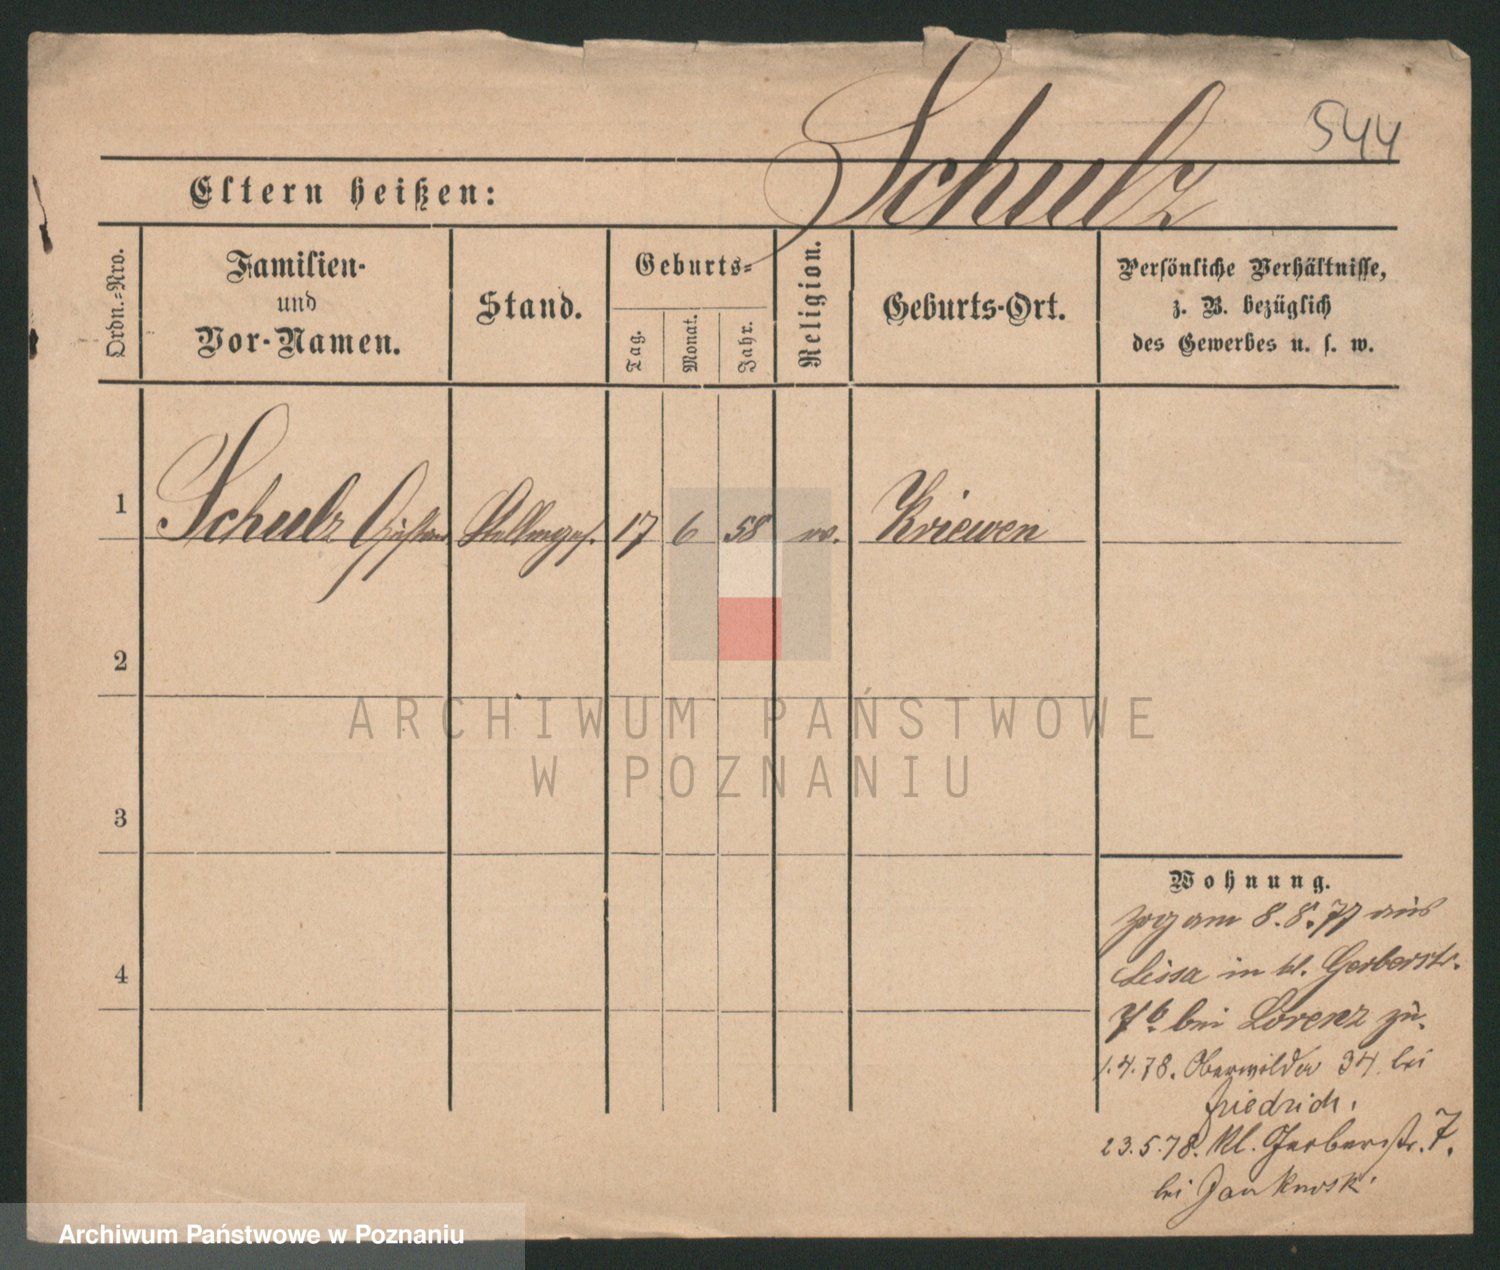 Schulz
544
Eltern heißen:
Ordn.-Nro.
Familien-
und
Vor-Namen.
Stand.
Geburts-
Tag.
Monat.
Jahr.
Religion.
Geburts-Ort.
Persönliche Verhältnisse,
z. B. bezüglich
des Gewerbes u. s. w.
1 Schulz Gustav 17 6 58 Kriewen
2
3
4
Wohnung.
zog am 8.8.77 aus
Lissa in kl. Gerberstr.
7b bei Lorenz zu.
1.4.78. Oberwilda 34 bei
Friedrich.
23.5.78. kl. Gerberstr. 7.
bei
ARCHIWUM PAŃSTWOWE
W POZNANIU
Archiwum Państwowe w Poznaniu